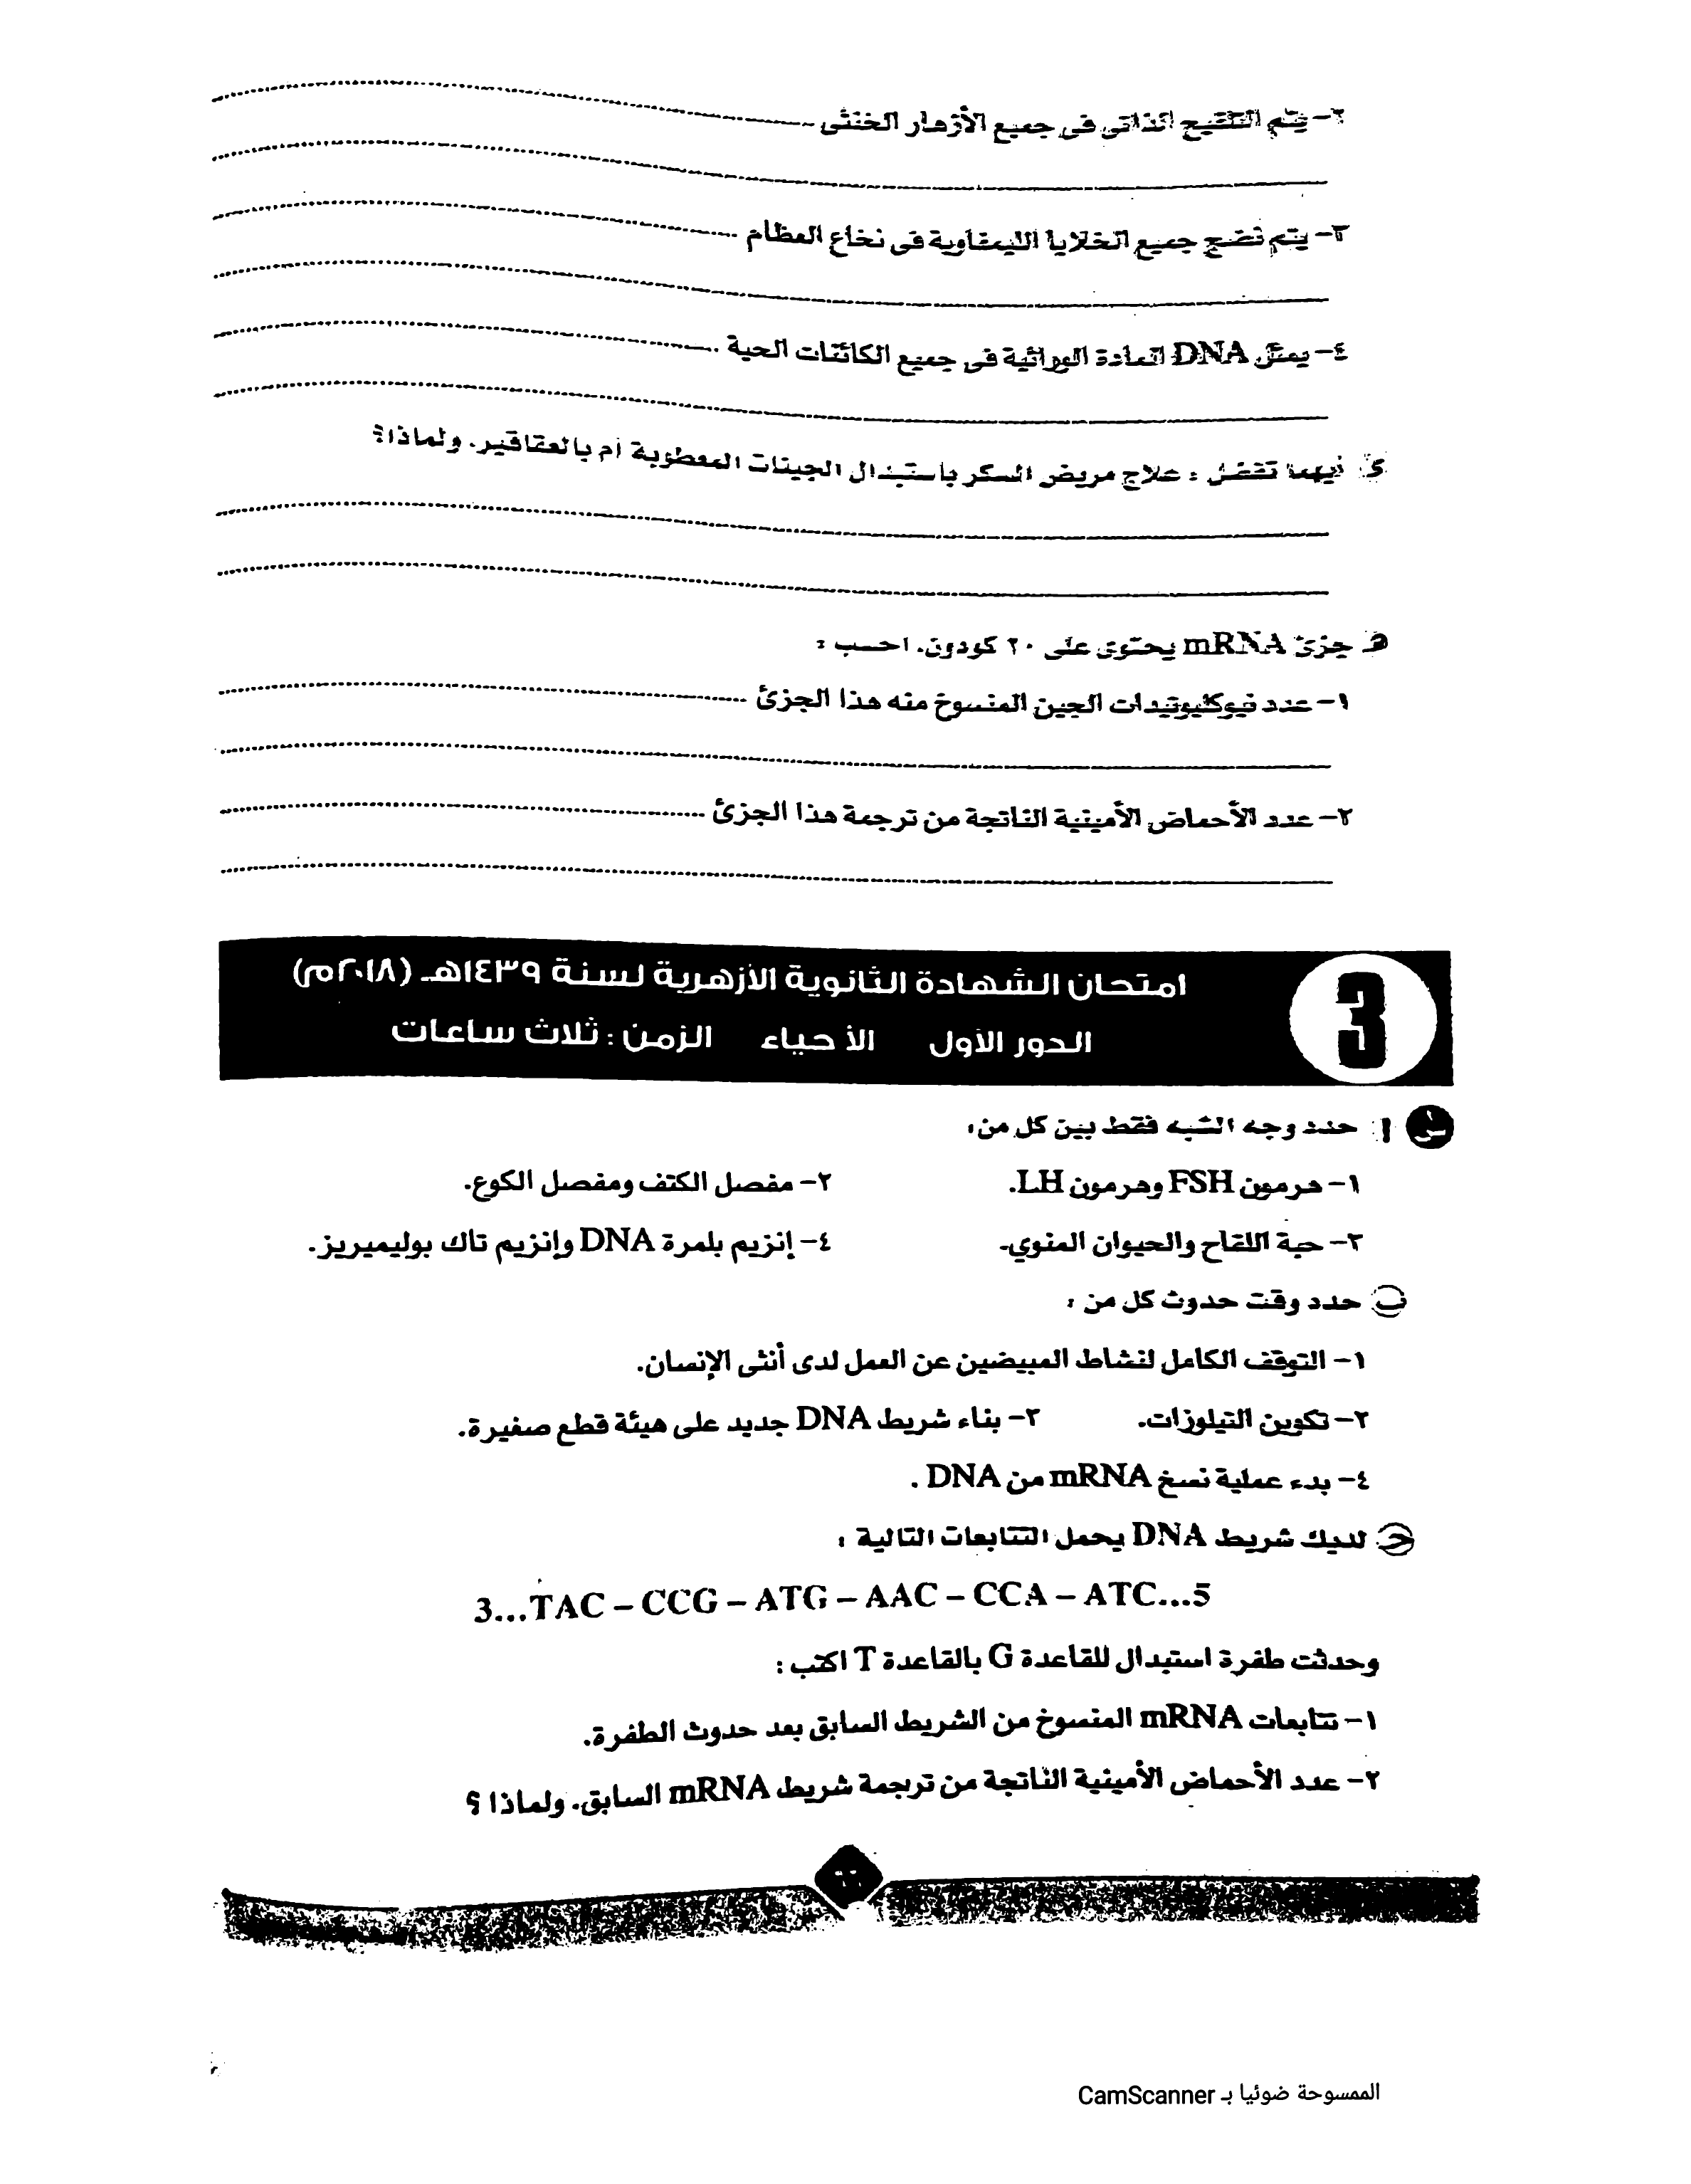 ٢- يتم التلقيح الذاتى فى جميع الأزهار الخنثى
٣- يتم نضج جميع الخلايا الليمفاوية فى نخاع العظام
٤- يمثل DNA المادة الوراثية فى جميع الكائنات الحية
د أيهما تفضل : علاج مريض السكر باستبدال الجينات المعطوبة أم بالعقاقير. ولماذا؟
هـ جزئ mRNA يحتوى على ٢٠ كودون. احسب :
١- عدد نيوكليوتيدات الجين المنسوخ منه هذا الجزئ
٢- عدد الأحماض الأمينية الناتجة من ترجمة هذا الجزئ
3
امتحان الشهادة الثانوية الأزهرية لسنة ١٤٣٩هـ (٢٠١٨م)
الدور الأول الأحياء الزمن : ثلاث ساعات
س١ أ حدد وجه الشبه فقط بين كل من:
١- هرمون FSH وهرمون LH. ٢- مفصل الكتف ومفصل الكوع.
٣- حبة اللقاح والحيوان المنوي. ٤- إنزيم بلمرة DNA وإنزيم تاك بوليميريز.
ب حدد وقت حدوث كل من :
١- التوقف الكامل لنشاط المبيضين عن العمل لدى أنثى الإنسان.
٢- تكوين التيلوزات. ٣- بناء شريط DNA جديد على هيئة قطع صغيرة.
٤- بدء عملية نسخ mRNA من DNA .
ج لديك شريط DNA يحمل التتابعات التالية :
3...TAC – CCG – ATG – AAC – CCA – ATC...5
وحدثت طفرة استبدال للقاعدة G بالقاعدة T اكتب :
١- تتابعات mRNA المنسوخ من الشريط السابق بعد حدوث الطفرة.
٢- عدد الأحماض الأمينية الناتجة من ترجمة شريط mRNA السابق. ولماذا ؟
الممسوحة ضوئيا بـ CamScanner